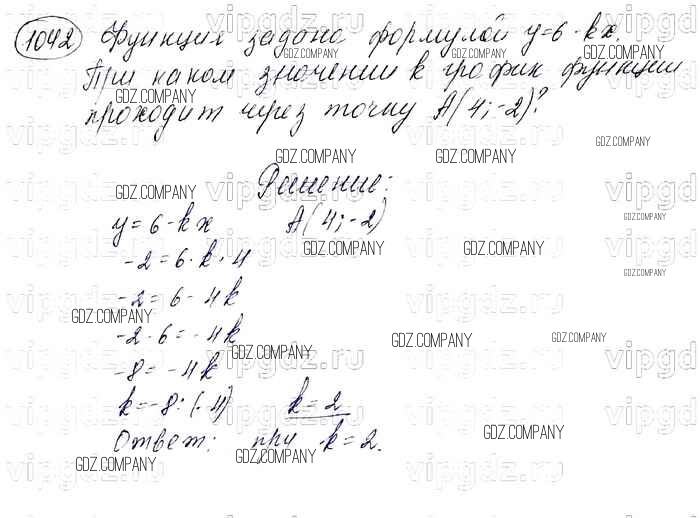 1042 Функция задана формулой y=6-kx.
При каком значении k график функции
проходит через точку A(4;-2)?
Решение:
y=6-kx A(4;-2)
-2=6-k·4
-2=6-4k
-2-6=-4k
-8=-4k
k=-8:(-4) k=2
Ответ: при k=2.
GDZ.COMPANY
vipgdz.ru